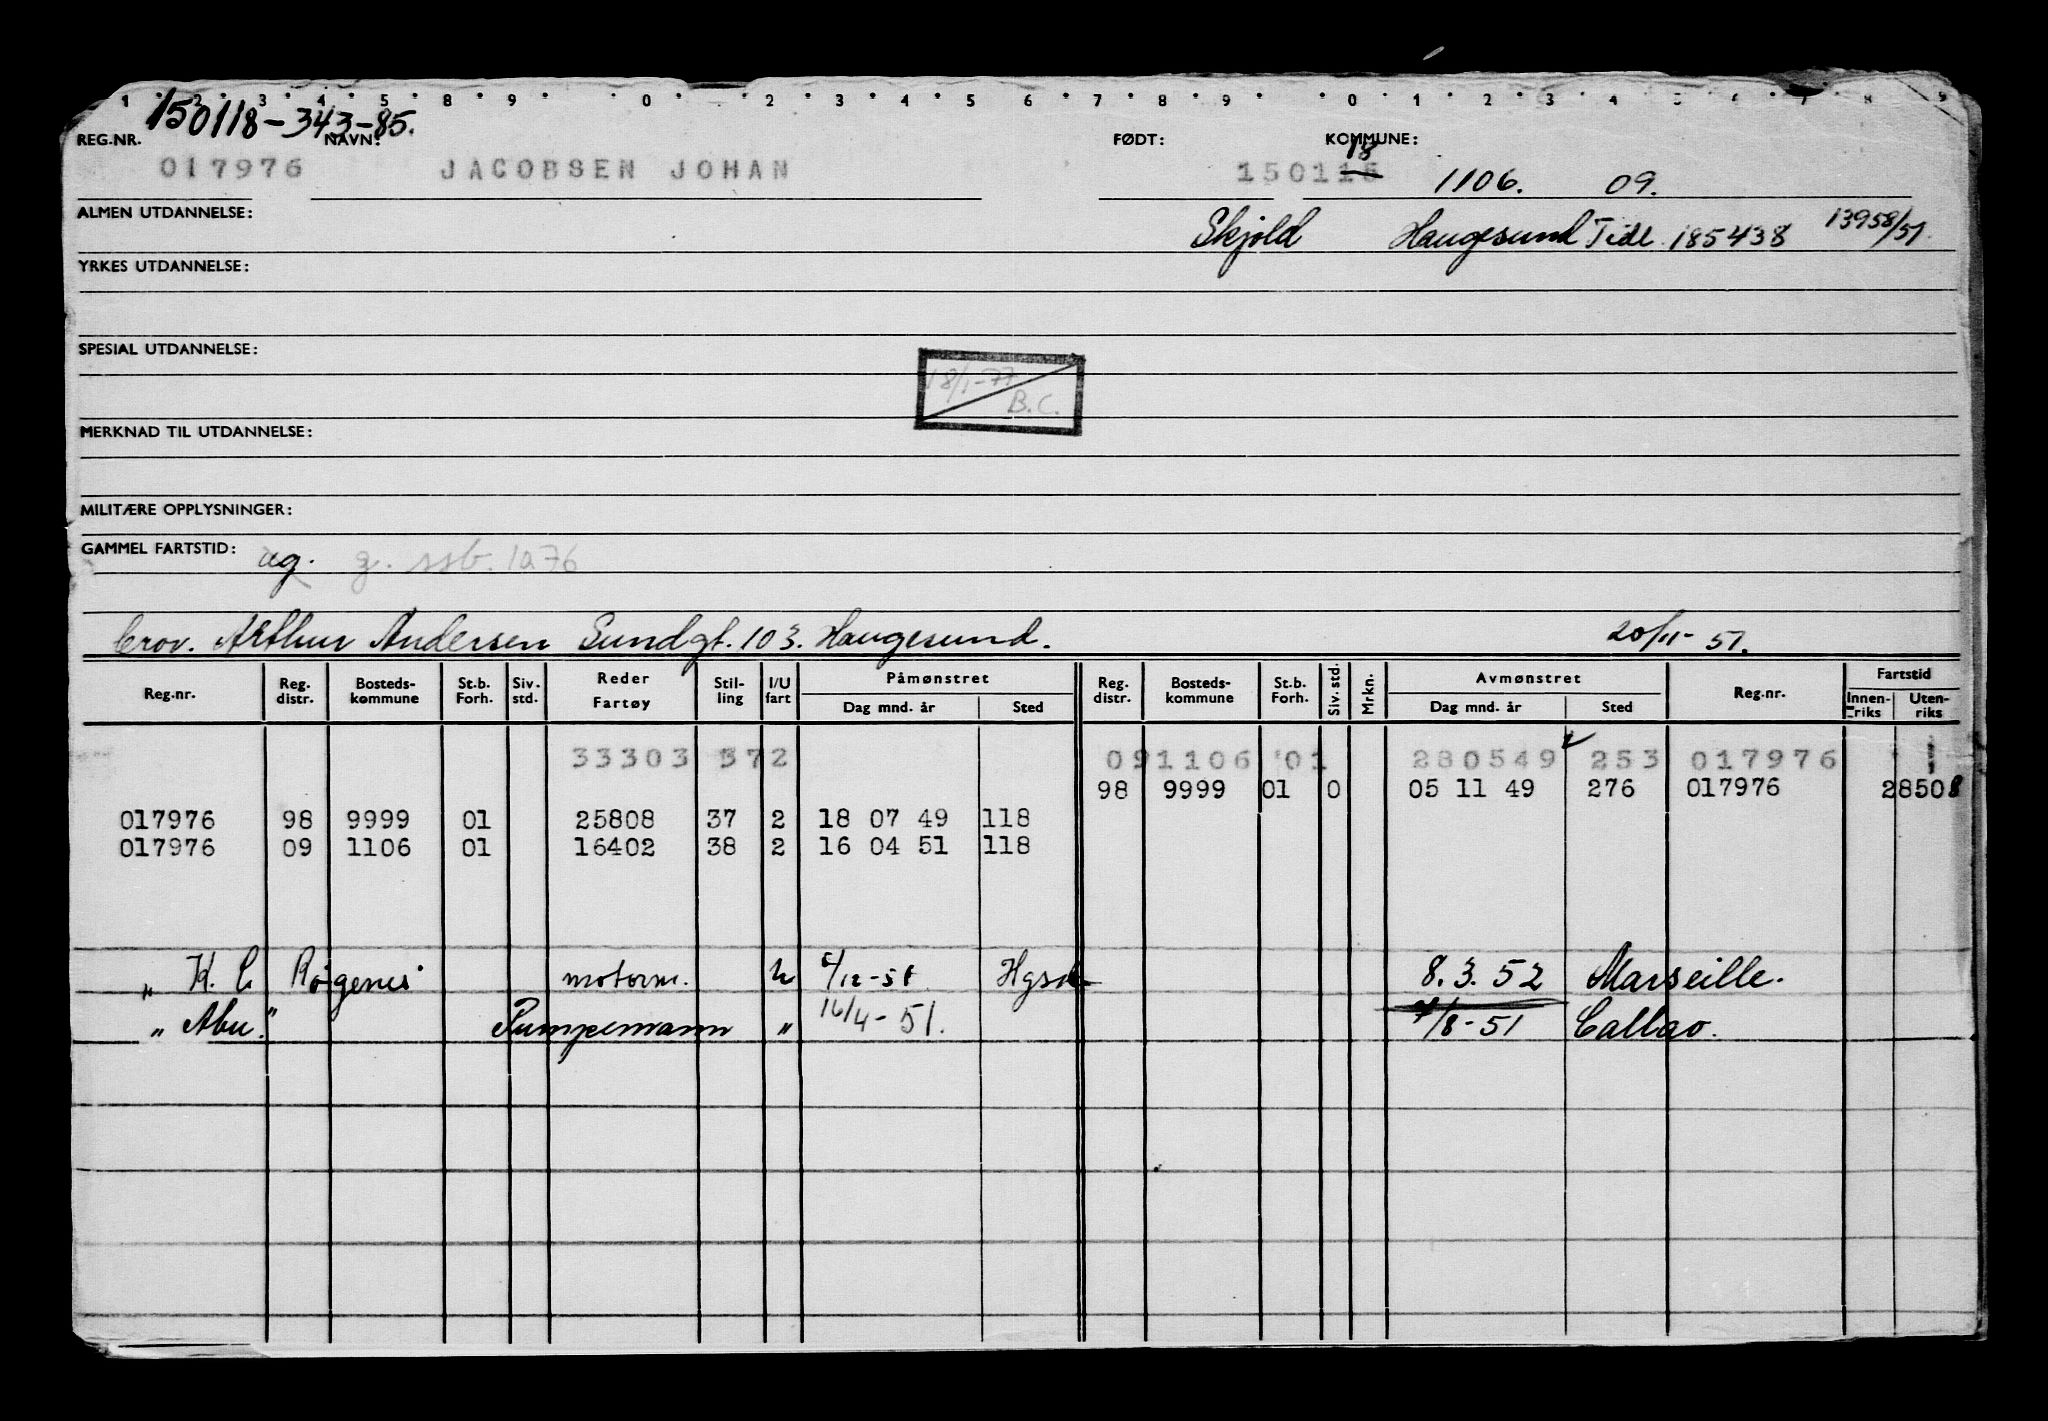 1 2 3 4 5 8 9 0 2 3 4 5 6 7 8 9 0 1 2 3 4 5 6 7 8 9
150118-343-85.
REG.NR. NAVN: FØDT: KOMMUNE:
18
017976 JACOBSEN JOHAN 150115 1106. 09.
ALMEN UTDANNELSE: Skjold Haugesund Tidl. 185438 13958/51
YRKES UTDANNELSE:
SPESIAL UTDANNELSE:
18/1-77
B.C.
MERKNAD TIL UTDANNELSE:
MILITÆRE OPPLYSNINGER:
GAMMEL FARTSTID: ag. g. ssb. 1a76
Arthur Andersen Sundgt. 103. Haugesund. 20/11-51.
Reg.nr. Reg. distr. Bosteds- kommune St.b. Forh. Siv. std. Reder Fartøy Stil- ling I/U fart Påmønstret Dag mnd. år Sted Reg. distr. Bosteds- kommune St.b. Forh. Siv. std. Mrkn. Avmønstret Dag mnd. år Sted Reg.nr. Fartstid Innen- riks Uten- riks
33303 372 091106 01 280549 253 017976
98 9999 01 0 05 11 49 276 017976 28508
017976 98 9999 01 25808 37 2 18 07 49 118
017976 09 1106 01 16402 38 2 16 04 51 118
„ H. C. Røgenes motorm. U /12-51 Hgsd 8.3.52 Marseille.
„ Abu." Pumpemann „ 16/4-51. /8-51 Callao.